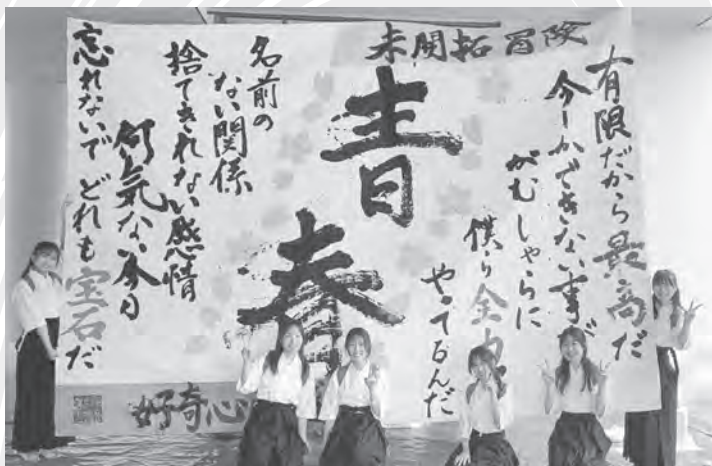 未開拓冒険
有限だから最高だ
今しかできない事
がむしゃらに
僕ら全
やってるんだ
青春
名前の
ない関係
捨てきれない感情
何気ない今日
忘れないで どれも宝石だ
好奇心